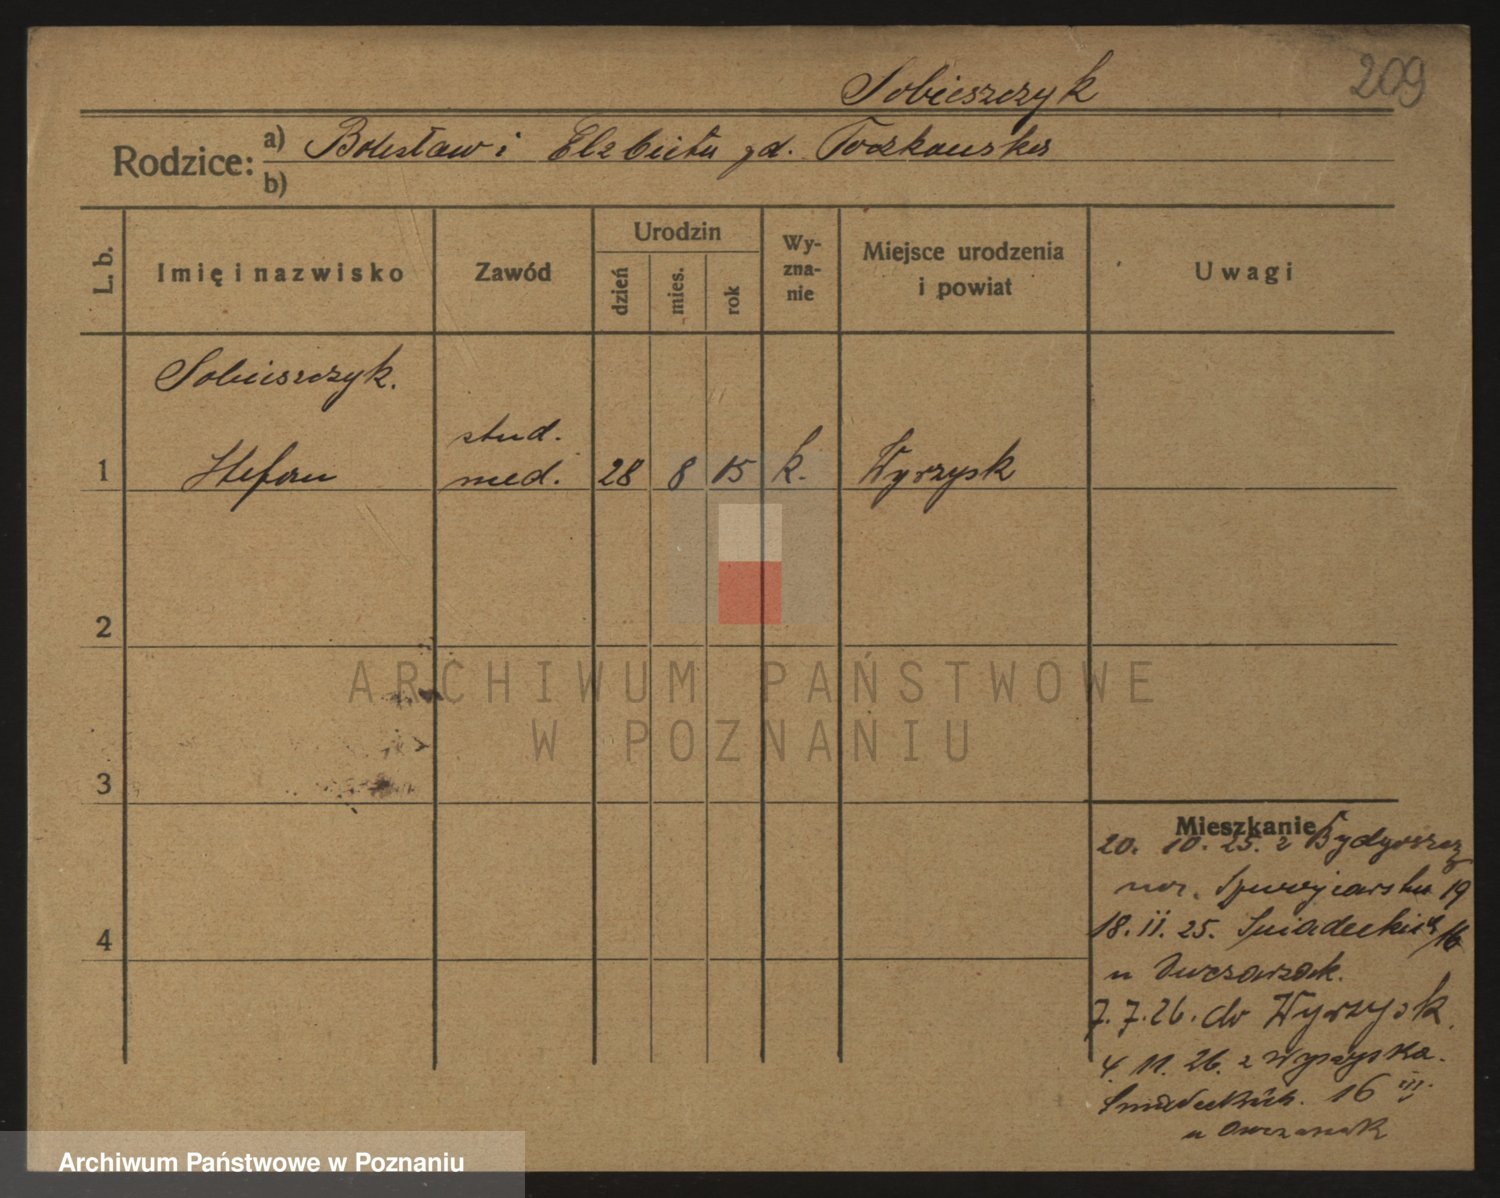 209
Sobieszczyk
Rodzice: a) Bolesław i Elżbieta zd. Toczkowska
b)
L. b.
Imię i nazwisko
Zawód
Urodzin
dzień
mies.
rok
Wy-
zna-
nie
Miejsce urodzenia
i powiat
Uwagi
Sobieszczyk.
1 Stefan stud. med. 28 8 15 k. Wyrzysk
2
3
4
Mieszkanie
20. 10. 25. z Bydgoszcz
Szwajcarska 19
18. II. 25. Śniadeckich 16
u Owczarzak.
7. 7. 26. do Wyrzysk.
4. 11. 26. z Wyrzyska.
Śniadeckich. 16 III.
u Owczarzak
ARCHIWUM PAŃSTWOWE
W POZNANIU
Archiwum Państwowe w Poznaniu